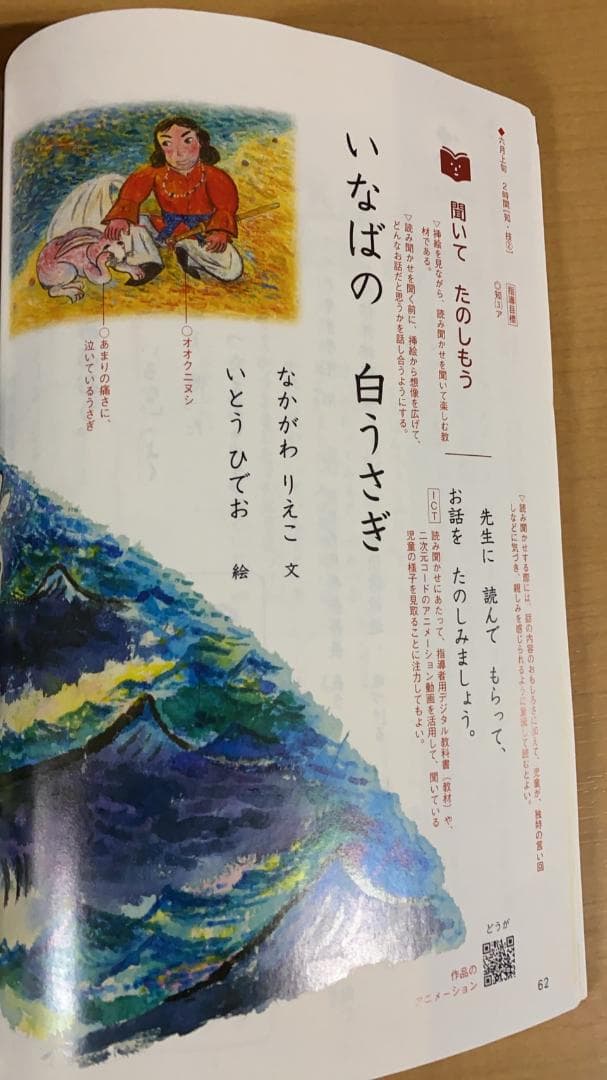 ◆六月上旬 2時間〔知・技②〕
指導目標
◎知(3)ア
聞いて たのしもう
▽挿絵を見ながら、読み聞かせを聞いて楽しむ教
材である。
▽読み聞かせを聞く前に、挿絵から想像を広げて、
どんなお話だと思うかを話し合うようにする。
▽読み聞かせする際には、話の内容のおもしろさに加えて、児童が、独特の言い回
しなどに気づき、親しみを感じられるように意識して読むとよい。
先生に 読んで もらって、
お話を たのしみましょう。
ICT
読み聞かせにあたって、指導者用デジタル教科書(教材)や、
二次元コードのアニメーション動画を活用して、聞いている
児童の様子を見取ることに注力してもよい。
いなばの 白うさぎ
なかがわ りえこ 文
いとう ひでお 絵
○オオクニヌシ
○あまりの痛さに、
泣いているうさぎ
どうが
作品の
アニメーション
62